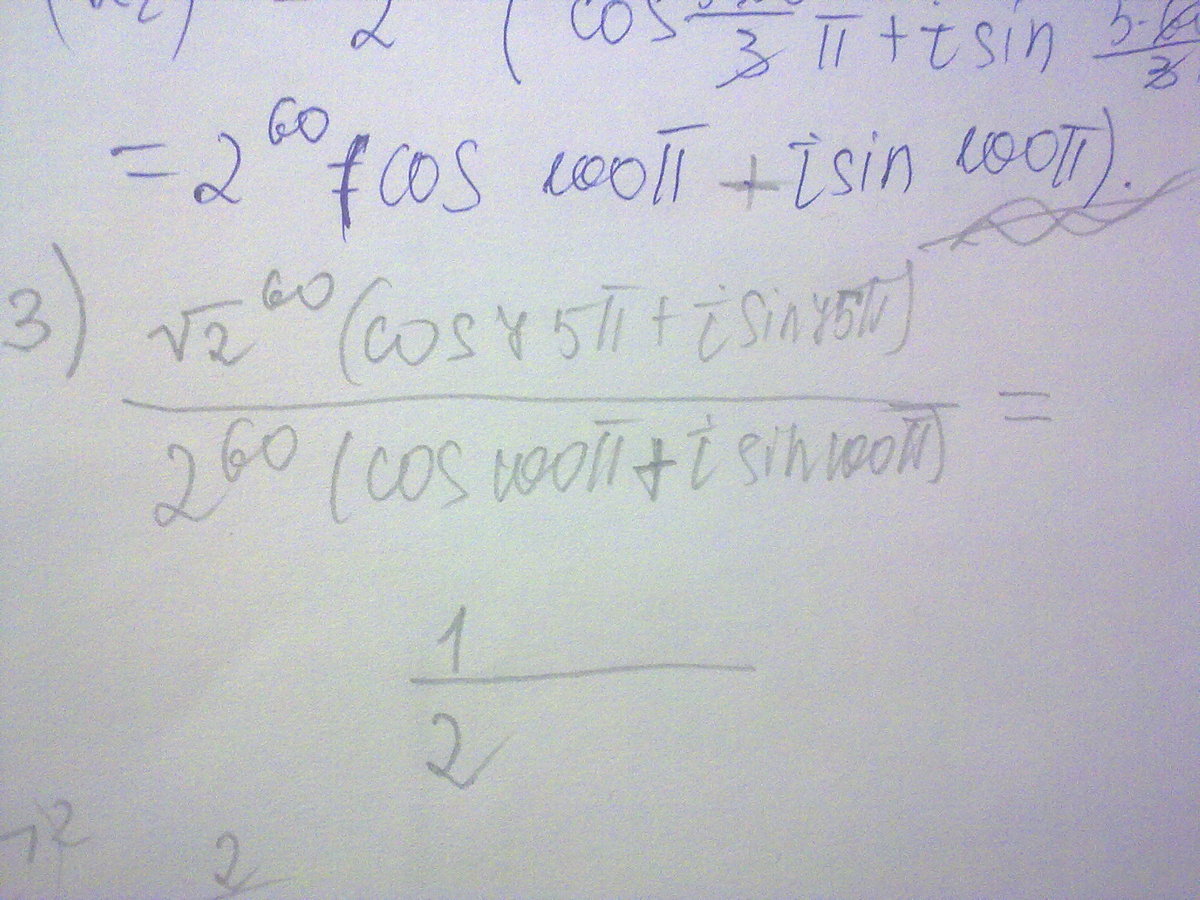 2 (cos 3 π + i sin 5·60
= 2^60 (cos 100π + i sin 100π).
3) √2^60 (cos 45π + i sin 45π)
2^60 (cos 100π + i sin 100π) =
1
2
2
2